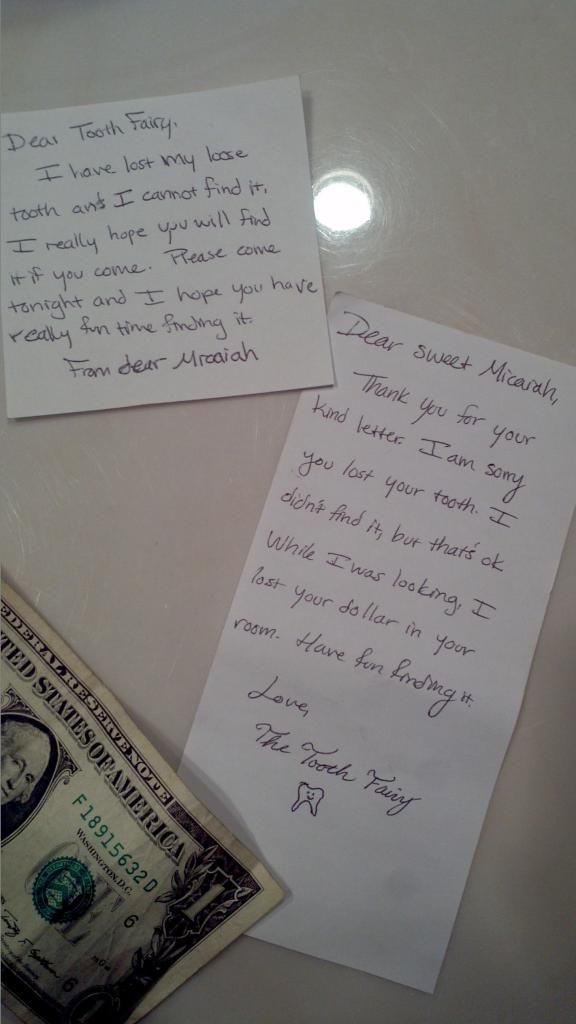 Dear Tooth Fairy,
I have lost my loose
tooth and I cannot find it,
I really hope you will find
it if you come. Please come
tonight and I hope you have
really fun time finding it.
From dear Micaiah
Dear sweet Micaiah,
Thank you for your
kind letter. I am sorry
you lost your tooth. I
didn't find it, but that's ok
While I was looking, I
lost your dollar in your
room. Have fun finding it.
Love,
The Tooth Fairy
FEDERAL RESERVE NOTE
TED STATES OF AMERICA
F18915632D
WASHINGTON, D.C.
6
6
1